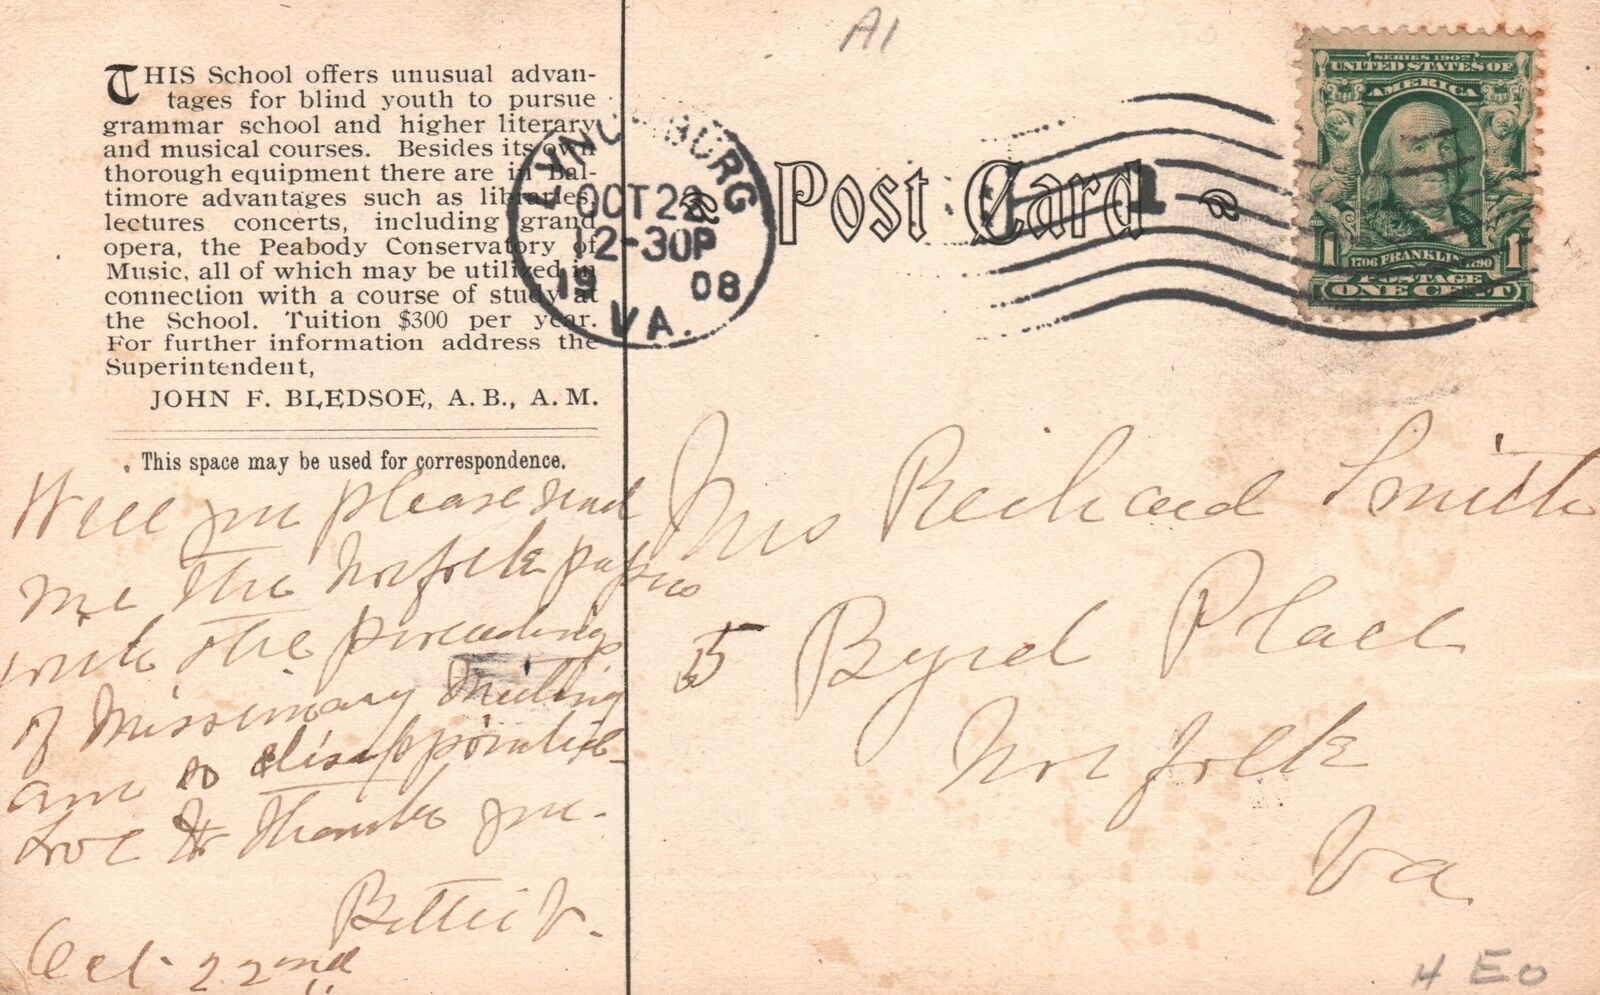 A1
THIS School offers unusual advan-
tages for blind youth to pursue
grammar school and higher literary
and musical courses. Besides its own
thorough equipment there are in Bal-
timore advantages such as libraries,
lectures concerts, including grand
opera, the Peabody Conservatory of
Music, all of which may be utilized in
connection with a course of study at
the School. Tuition $300 per year.
For further information address the
Superintendent,
JOHN F. BLEDSOE, A. B., A. M.
This space may be used for correspondence.
Will you please send
me the Norfolk papers
with the proceedings
of Missionary Meeting
am so disappointed
Love & thanks you.
Bettie V.
Oct. 22nd
LYNCHBURG
OCT 22
12-30P
1908
VA.
Post Card
SERIES 1902
UNITED STATES OF
AMERICA
1706 FRANKLIN 1790
1 1
POSTAGE
ONE CENT
Mrs Richard Smith
5 Byrd Place
Norfolk
Va
4 EO